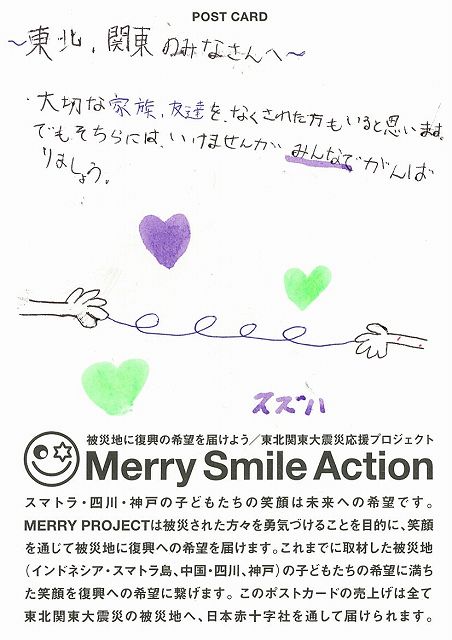 POST CARD
〜東北,関東のみなさんへ〜
・大切な家族,友達を,なくされた方もいると思います。
でもそちらには,いけませんが みんなでがんば
りましょう。
スズハ
被災地に復興の希望を届けよう／東北関東大震災応援プロジェクト
Merry Smile Action
スマトラ・四川・神戸の子どもたちの笑顔は未来への希望です。
MERRY PROJECTは被災された方々を勇気づけることを目的に、笑顔
を通じて被災地に復興への希望を届けます。これまでに取材した被災地
（インドネシア・スマトラ島、中国・四川、神戸）の子どもたちの希望に満ち
た笑顔を復興への希望に繋げます。このポストカードの売上げは全て
東北関東大震災の被災地へ、日本赤十字社を通して届けられます。